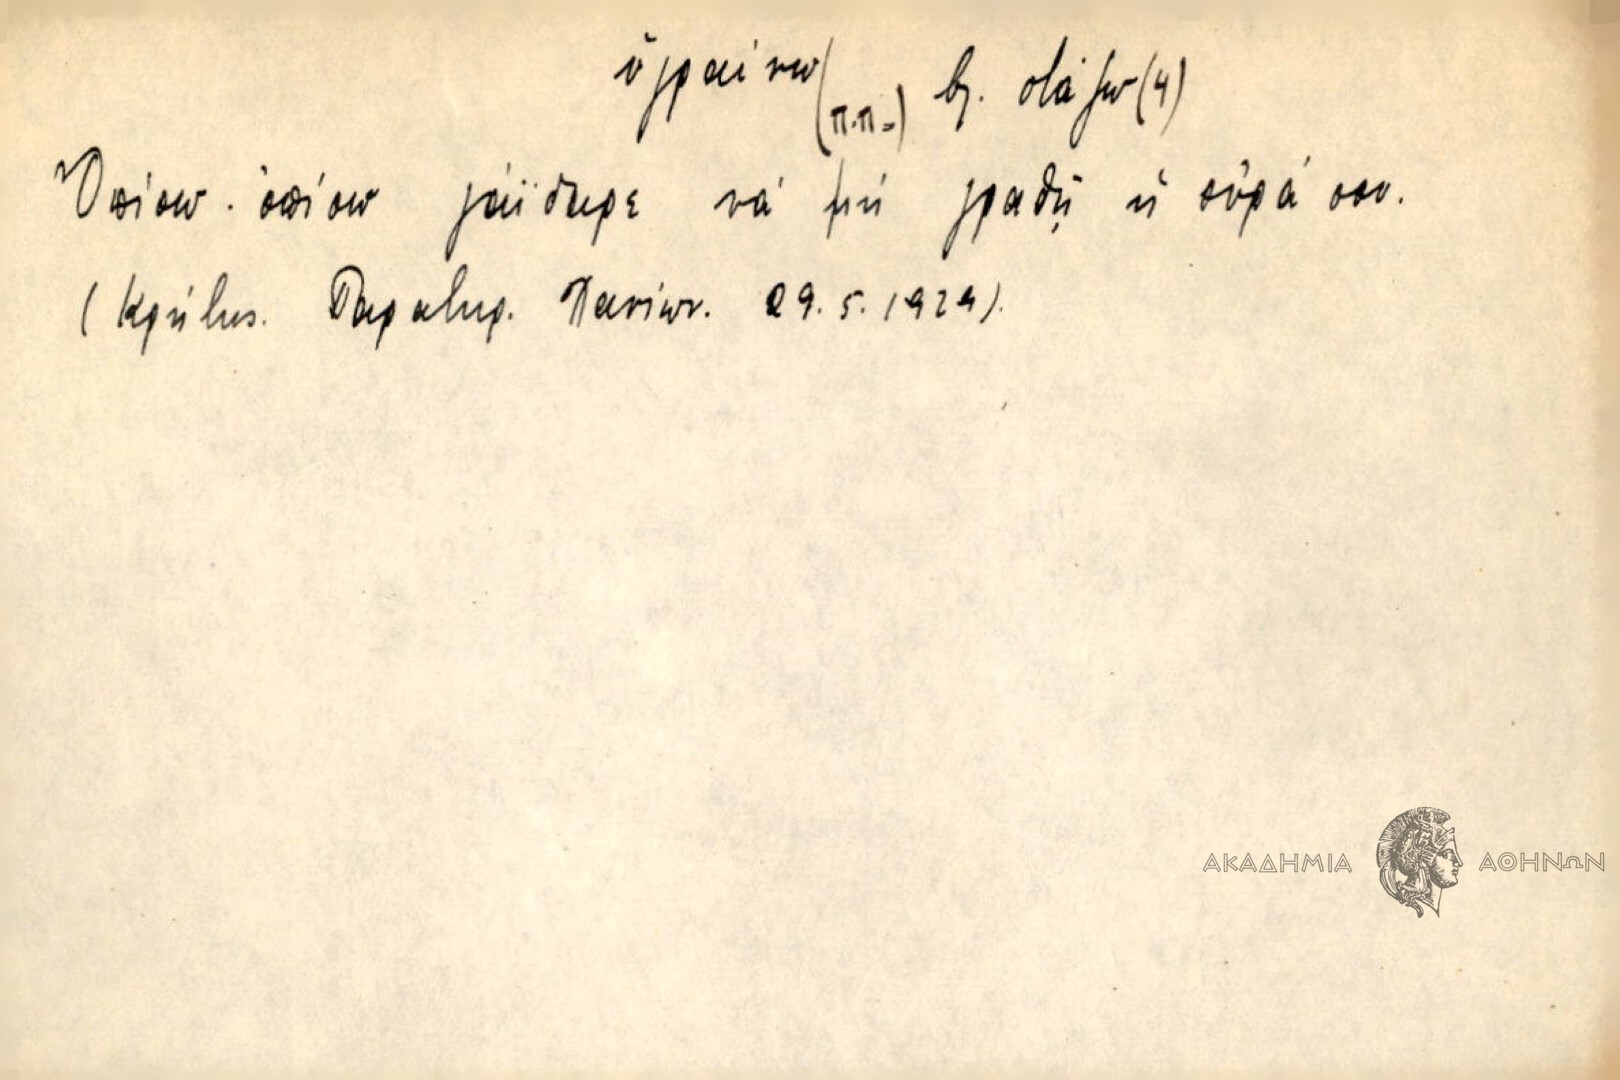 ὑγραίνω (π.π.=) βλ. στάζω (4)
Ὀπίσω-ὀπίσω γάϊδαρε νά μή γραθῇ ἡ οὐρά σου.
(Κρήτης. Παρατηρ. Πανίων. 29.5.1929).
ΑΚΑΔΗΜΙΑ ΑΘΗΝΩΝ